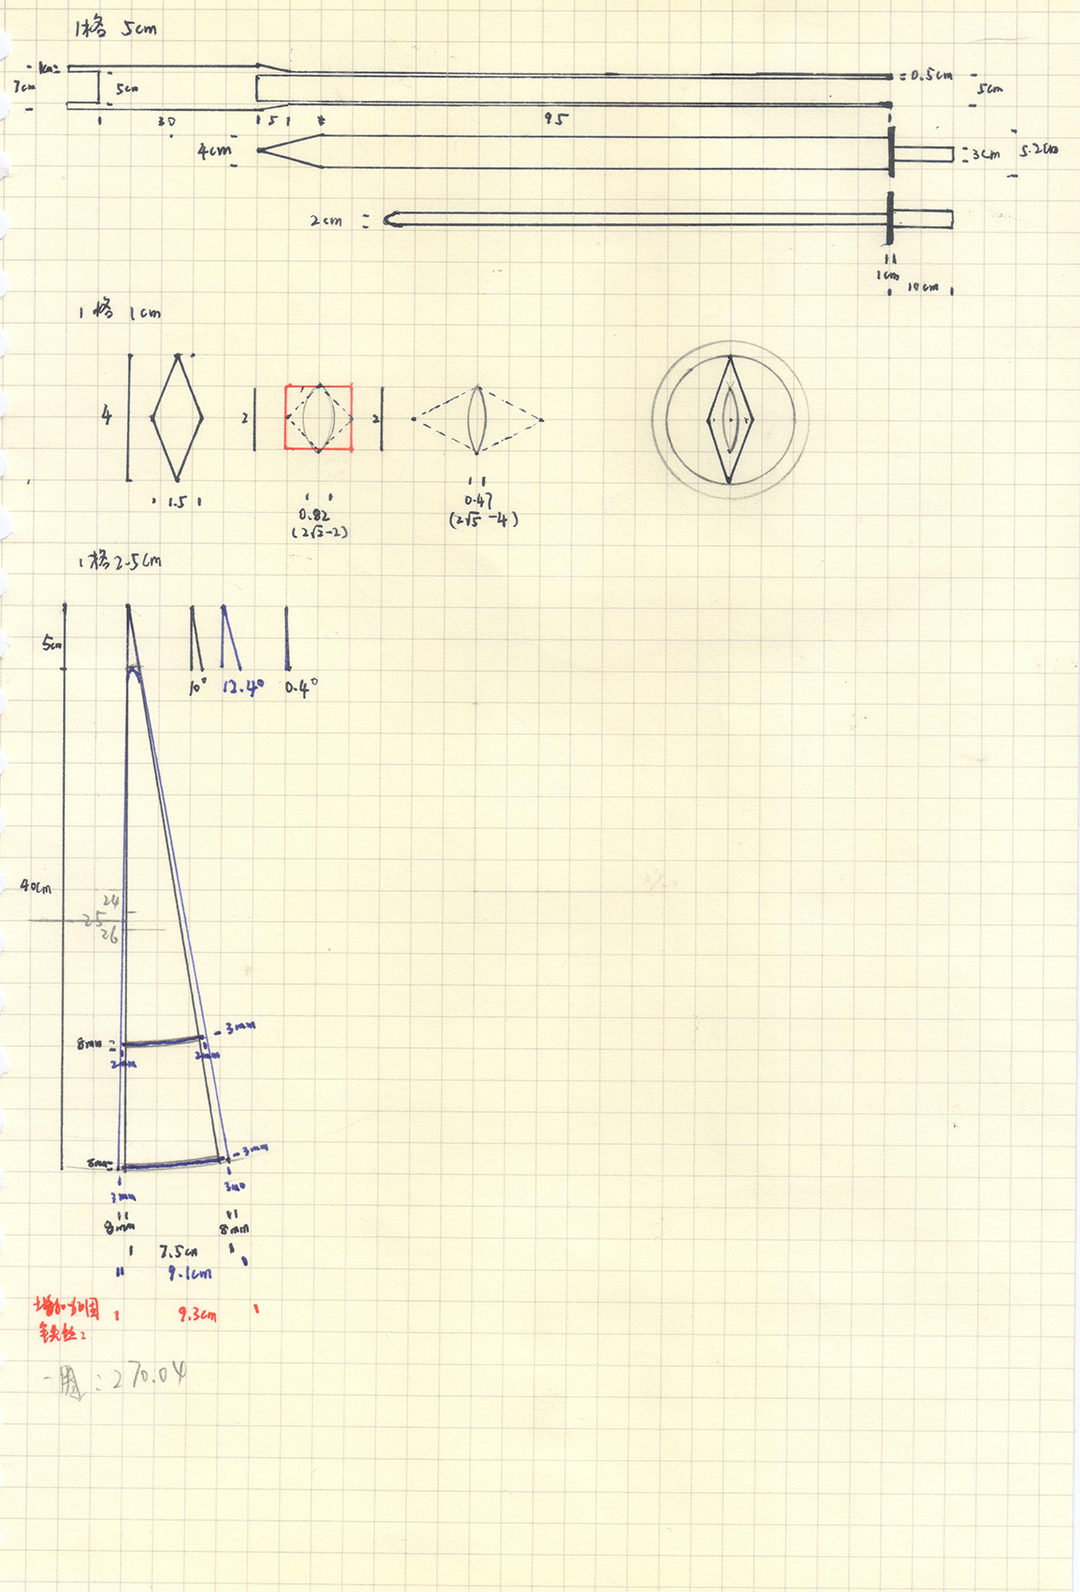 1格 5cm
1cm=
7cm
5cm
=0.5cm
5cm
30
5
95
4cm
=3cm
5.2cm
2cm =
1cm
10cm
1格 1cm
4
2
2
1.5
0.82
(2√2-2)
0.47
(2√5-4)
1格2.5cm
5cm
10°
12.4°
0.4°
40cm
24
25
26
8mm =
-3mm
2mm
2mm
8mm=
-3mm
3mm
3mm
8mm
8mm
7.5cm
9.1cm
9.3cm
一周:270.04